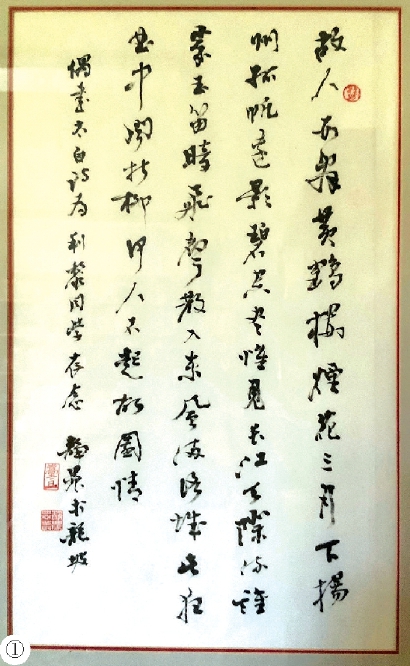 故人西辭黃鶴樓煙花三月下揚
州孤帆遠影碧空盡惟見長江天際流誰
家玉笛暗飛聲散入春風滿洛城此夜
曲中聞折柳何人不起故園情
偶書太白詩为 同学存念 靜農 龍坡
①